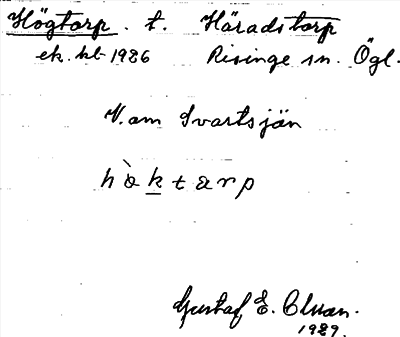 Högtorp. t. Häradstorp
ek. kb 1986 Risinge sn. Ögl.
V. om Svartsjön
hòktarp
Gustaf E.
1929.